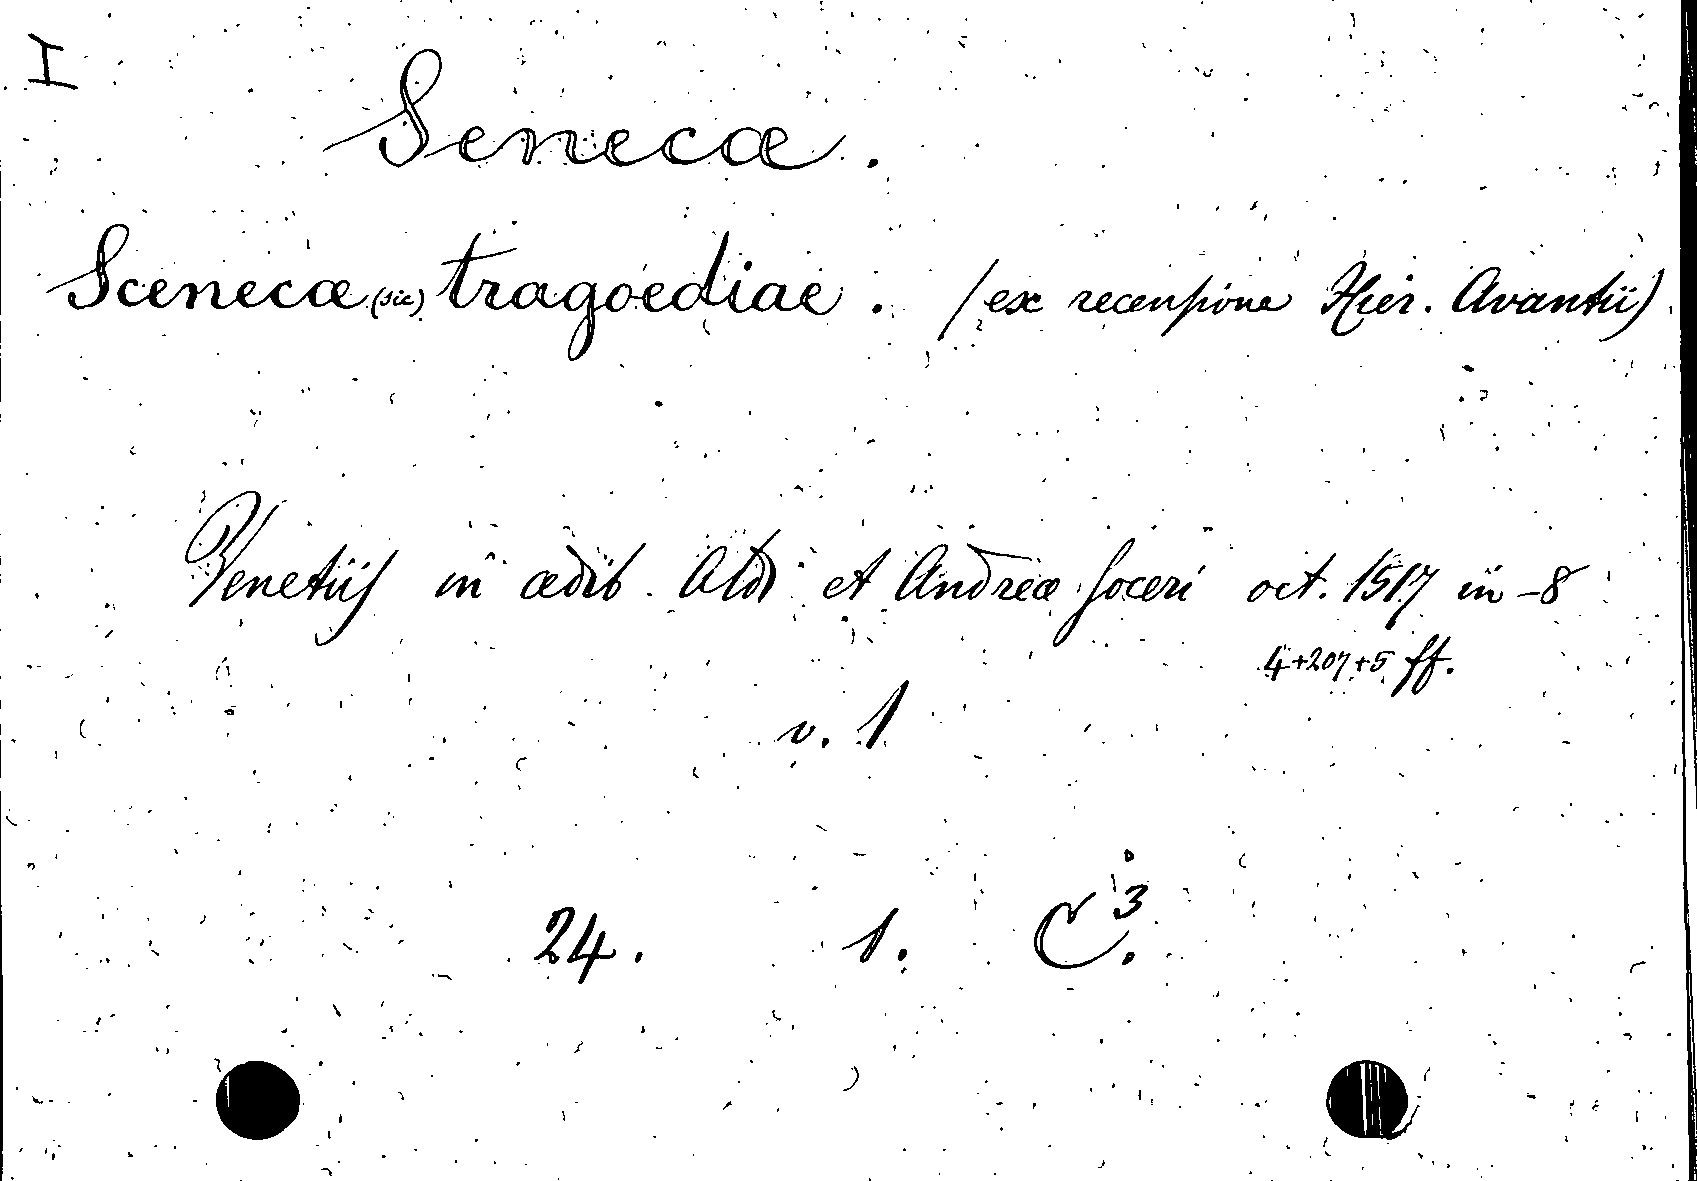 I
Seneca.
Scenecae (sic) tragoediae. (ex recensione Hier. Avantii)
Venetiis in ædib. Aldi et Andreæ soceri oct. 1517 in-8
4+207+5 ff.
v. 1
24. 1. C.3